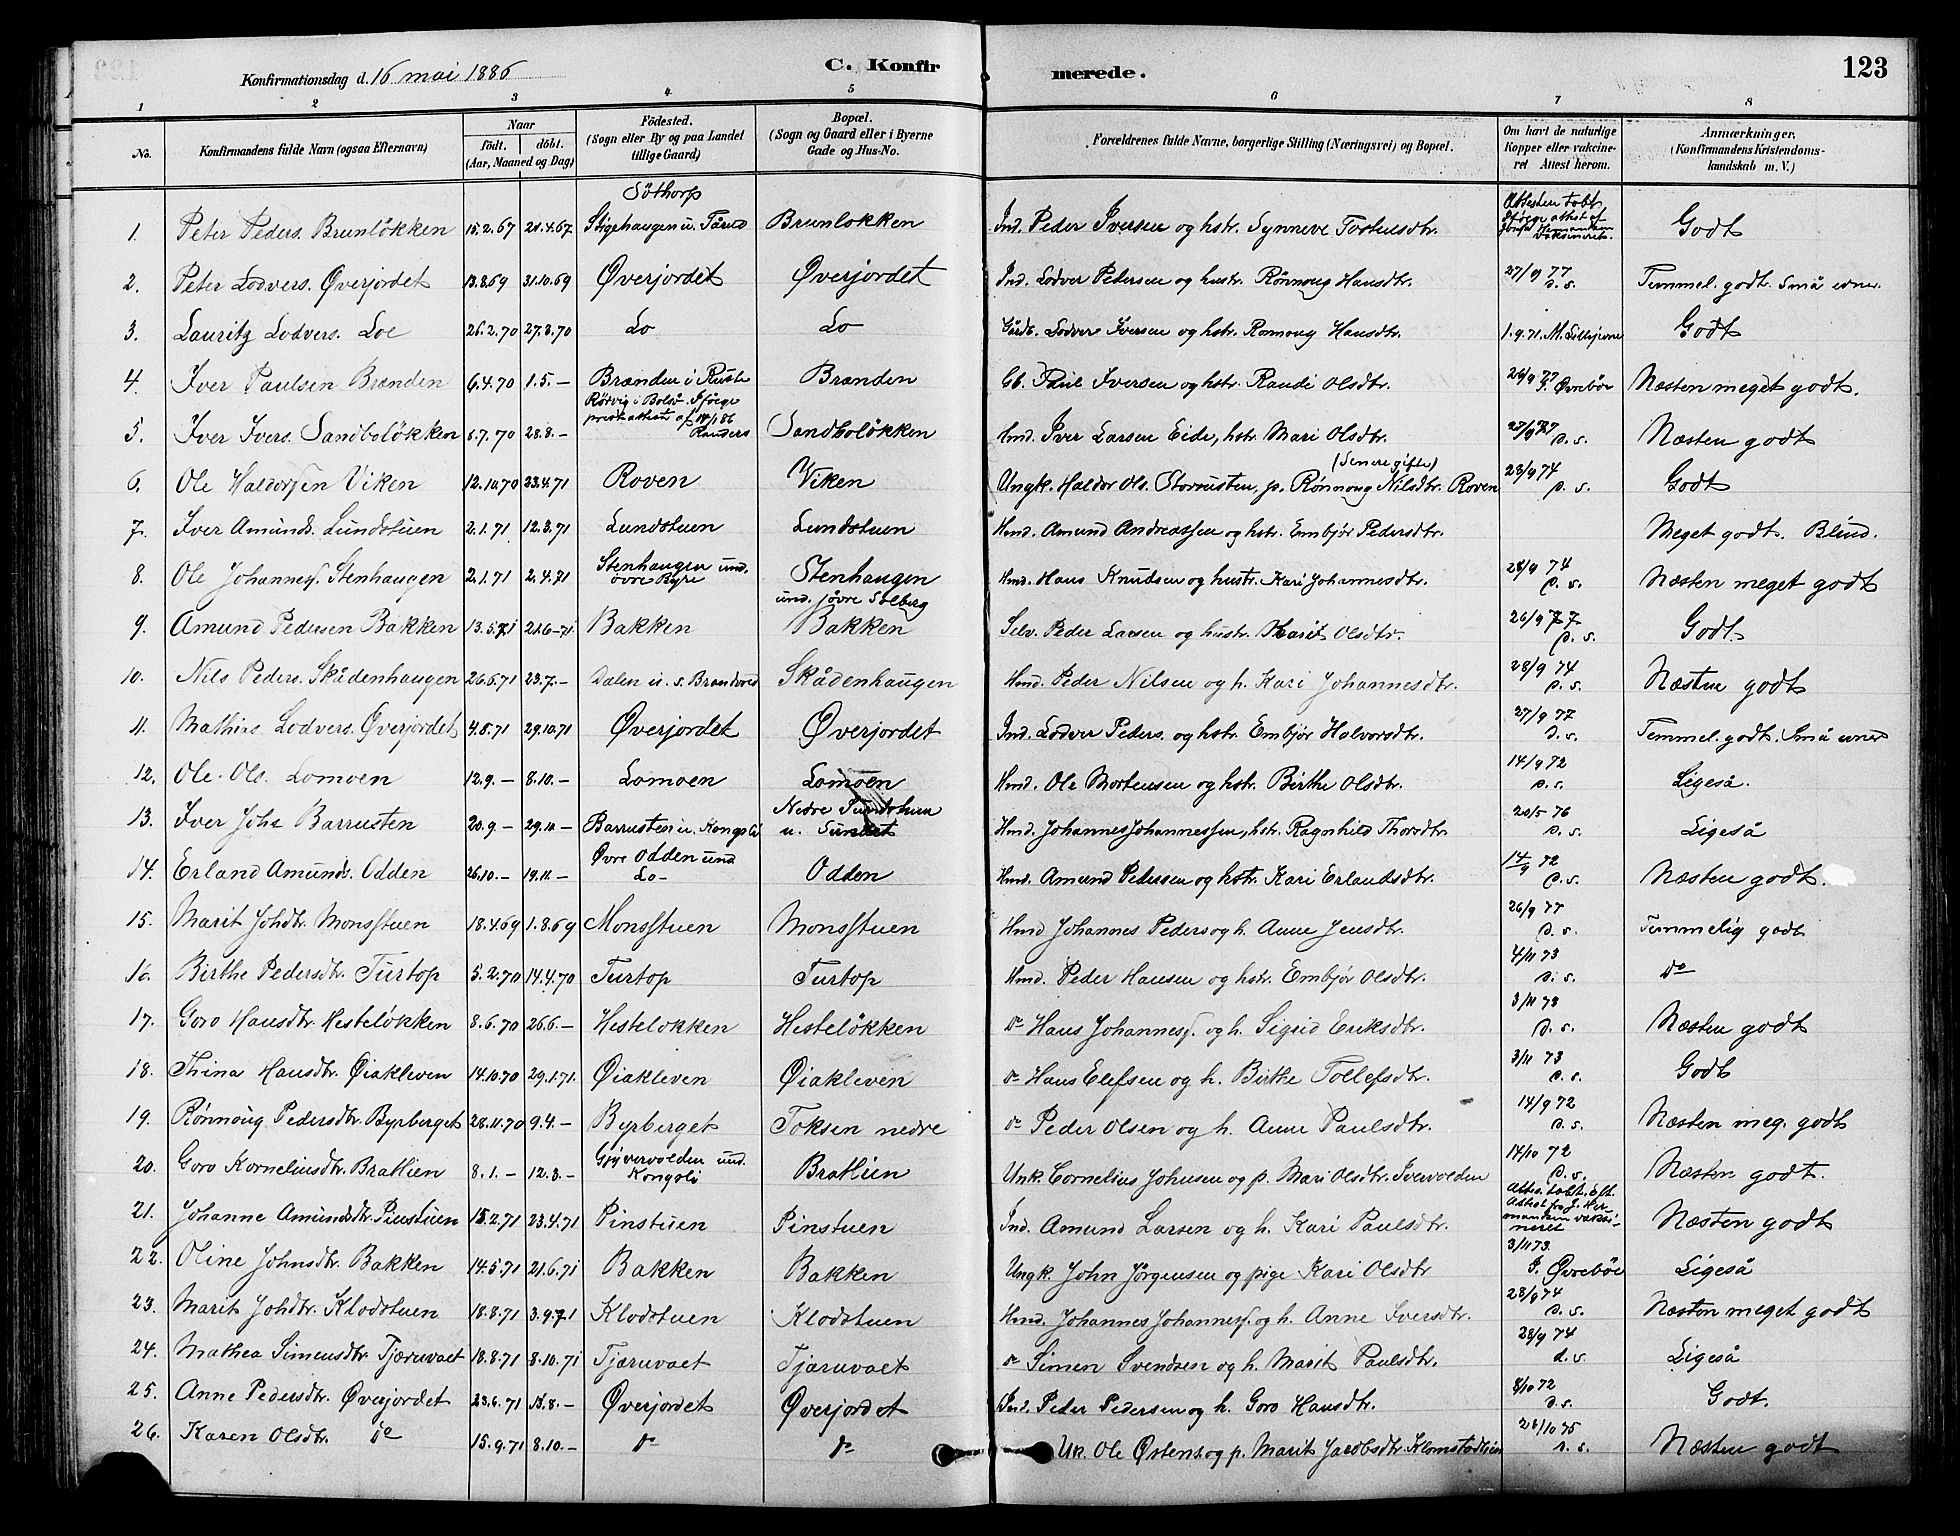 Konfirmationsdag d. 16 mai 1886 C. Konfirmerede. 123
1 2 3 4 5 6 7 8
No. Konfirmandens fulde Navn (ogsaa Efternavn) Naar födt. döbt. (Aar, Maaned og Dag) Födested. (Sogn eller By og paa Landet tillige Gaard) Bopæl. (Sogn og Gaard eller i Byerne Gade og Hus-No. Forældrenes fulde Navne, borgerlige Stilling (Næringsvei) og Bopæl. Om havt de naturlige Kopper eller vakcineret Attest herom. Anmærkninger. (Konfirmandens Kristendomskundskab m. V.)
1. Peter Peders. Brunlökken 15.2.67 21.4.67 Söthorp Brunlokken Ind. Peder Iversen og hstr. Synneve Tostensdtr. Attesten tabt Godt
2. Peter Lodvers. Øverjordet 13.8.69 31.10.69 Øverjordet Øverjordet Ind. Lodver Pedersen og hustr. Rönnoug Hansdtr. 27/9 77 d. s. Temmel. godt. Små evner.
3. Lauritz Lodvers. Loe 26.2.70 27.3.70 Lo Lo Gårdb. Lodver Iversen og hstr. Romoug Hansdtr. 1.9.71. M. Godt
4. Iver Paulsen Brænden 6.4.70 1.5.- Brænden i Ruste Brænden Gb. Paul Iversen og hstr. Randi Olsdtr. 26/9 77 J. Øvrebøe Næsten meget godt.
5. Iver Ivers. Sandbolökken 5.7.70 28.8.- Rørvig i Bolsö. Ifølge prest attest af 14/1 86 Randers Sandbolökken Hmd. Iver Larsen Eide, hstr. Mari Olsdtr. 27/9 77 d. s. Næsten godt
6. Ole Haldorsen Viken 12.10.70 23.4.71 Roven Viken Ungk. Haldor Ols. Storrusten, p. Rönnoug Nilsdtr. Roven (Senere gifte) 28/9 74 d. s. Godt
7. Iver Amunds. Lundstuen 2.1.71 12.3.71 Lundstuen Lundstuen Hmd. Amund Andreassen og hstr. Embjör Pedersdtr. Meget godt. Blind.
8. Ole Johannesf. Stenhaugen 2.1.71 2.4.71 Stenhaugen und. övre Byre Stenhaugen und. jövre Solberg Hmd. Hans Knudsen og hustr. Kari Johannesdtr. 28/9 74 d. s. Næsten meget godt
9. Amund Pedersen Bakken 13.5.71 21.6-71 Bakken Bakken Selv. Peder Larsen og hustr. Marit Olsdtr. 26/9 77 d. s. Godt
10. Nils Peders. Skådenhaugen 26.6.71 23.7.- Dalen u. s. Brandvold Skådenhaugen Hmd. Peder Nilsen og h. Kari Johannesdtr. 28/9 74 d. s. Næsten godt
11. Mathias Lodvers. Øverjordet 4.8.71 29.10.71 Øverjordet Øverjordet Ind. Lodver Peders. og hstr. Embjör Halvorsdtr. 27/9 77 d. s. Temmel. godt. Små evner
12. Ole Ols. Lomoen 12.9.- 8.10.- Lomoen Lomoen Hmd. Ole Mortensen og hstr. Birthe Olsdtr. 14/9 72 d. s. Ligeså.
13. Iver Johs Barrusten 20.9.- 29.10.- Barrusten u. Kongsli Nedre Sundstuen u. Sundet Hmd. Johannes Johannessen, hstr. Ragnhild Thordtr. 20/5 76 d. s. Ligeså
14. Erland Amunds. Odden 26.10.- 19.11.- Övre Odden und Lo- Odden Hmd. Amund Pedersen og hstr. Kari Erlandsdtr. 14/9 72 d. s. Næsten godt.
15. Marit Johdtr. Monsstuen 18.4.69 1.8.69 Monsstuen Monsstuen Hmd Johannes Peders og h. Anne Jensdtr. 26/9 77 d. s. Temmelig godt
16. Birthe Pedersdtr. Turtop 5.2.70 14.4.70 Turtop Turtop Hmd. Peder Hansen og hstr. Embjör Olsdtr. 4/11 73 d. s. do
17. Goro Hansdtr. Hestelökken 8.6.70 26.6.- Hestelokken Hestelökken do Hans Johannesf. og h. Sigrid Eriksdtr. 3/11 73 d. s. Næsten godt
18. Thina Hansdtr. Øiakleven 14.10.70 29.1.71. Øiakleven Øiakleven do Hans Elefsen og h. Birthe Tollefsdtr. 3/11 73 d. s. Godt
19. Rönnoug Pedersdtr. Byrberget 28.11.70 9.4.- Byrberget Toksen nedre do Peder Olsen og h. Anne Paulsdtr. 14/9 72 d. s. Næsten meg. godt
20. Goro Korneliusdtr. Bratlien 8.1.- 12.3.- Gjyvervolden und. Kongsli Bratlien Unk. Cornelius Johnsen og p. Mari Olsdtr. Ivervolden 14/10 72 d. s. Næsten godt.
21. Johanne Amundsdtr. Pinstuen 15.2.71 23.4.71 Pinstuen Pinstuen Ind. Amund Larsen og h. Kari Paulsdtr. Attes. tabt. Eft. Attest fra J. Hermandsen vaksineret Næsten godt
22. Oline Johnsdtr. Bakken 14.5.71 21.6.71 Bakken Bakken Ungk. John Jörgensen og pige Kari Olsdtr 3/11 73. J. Øvrebøe Ligeså
23. Marit Johdtr. Klodstuen 18.8.71 3.9.71 Klodstuen Klodstuen Hmd. Johannes Johannesf. og h. Anne Iversdtr. 28/9 74 d. s. Næsten meget godt
24. Mathea Simensdtr. Tjæruvaet 18.8.71 8.10.71 Tjæruvaet Tjæruvaet do Simen Svendsen og h. Marit Paulsdtr. 28/9 74 d. s. Ligeså
25. Anne Pedersdtr. Øverjordet 23.6.71 15.8.- Øverjordet Øverjordet Ind. Peder Pedersen og h. Goro Hansdtr. 8/10 72 d. s. Godt.
26. Karen Olsdtr. do 15.9.71 8.10.- do do Uk. Ole Østens. og p. Marit Jacobsdtr. Klomstadlien 28/10 75 d. s. Næsten godt